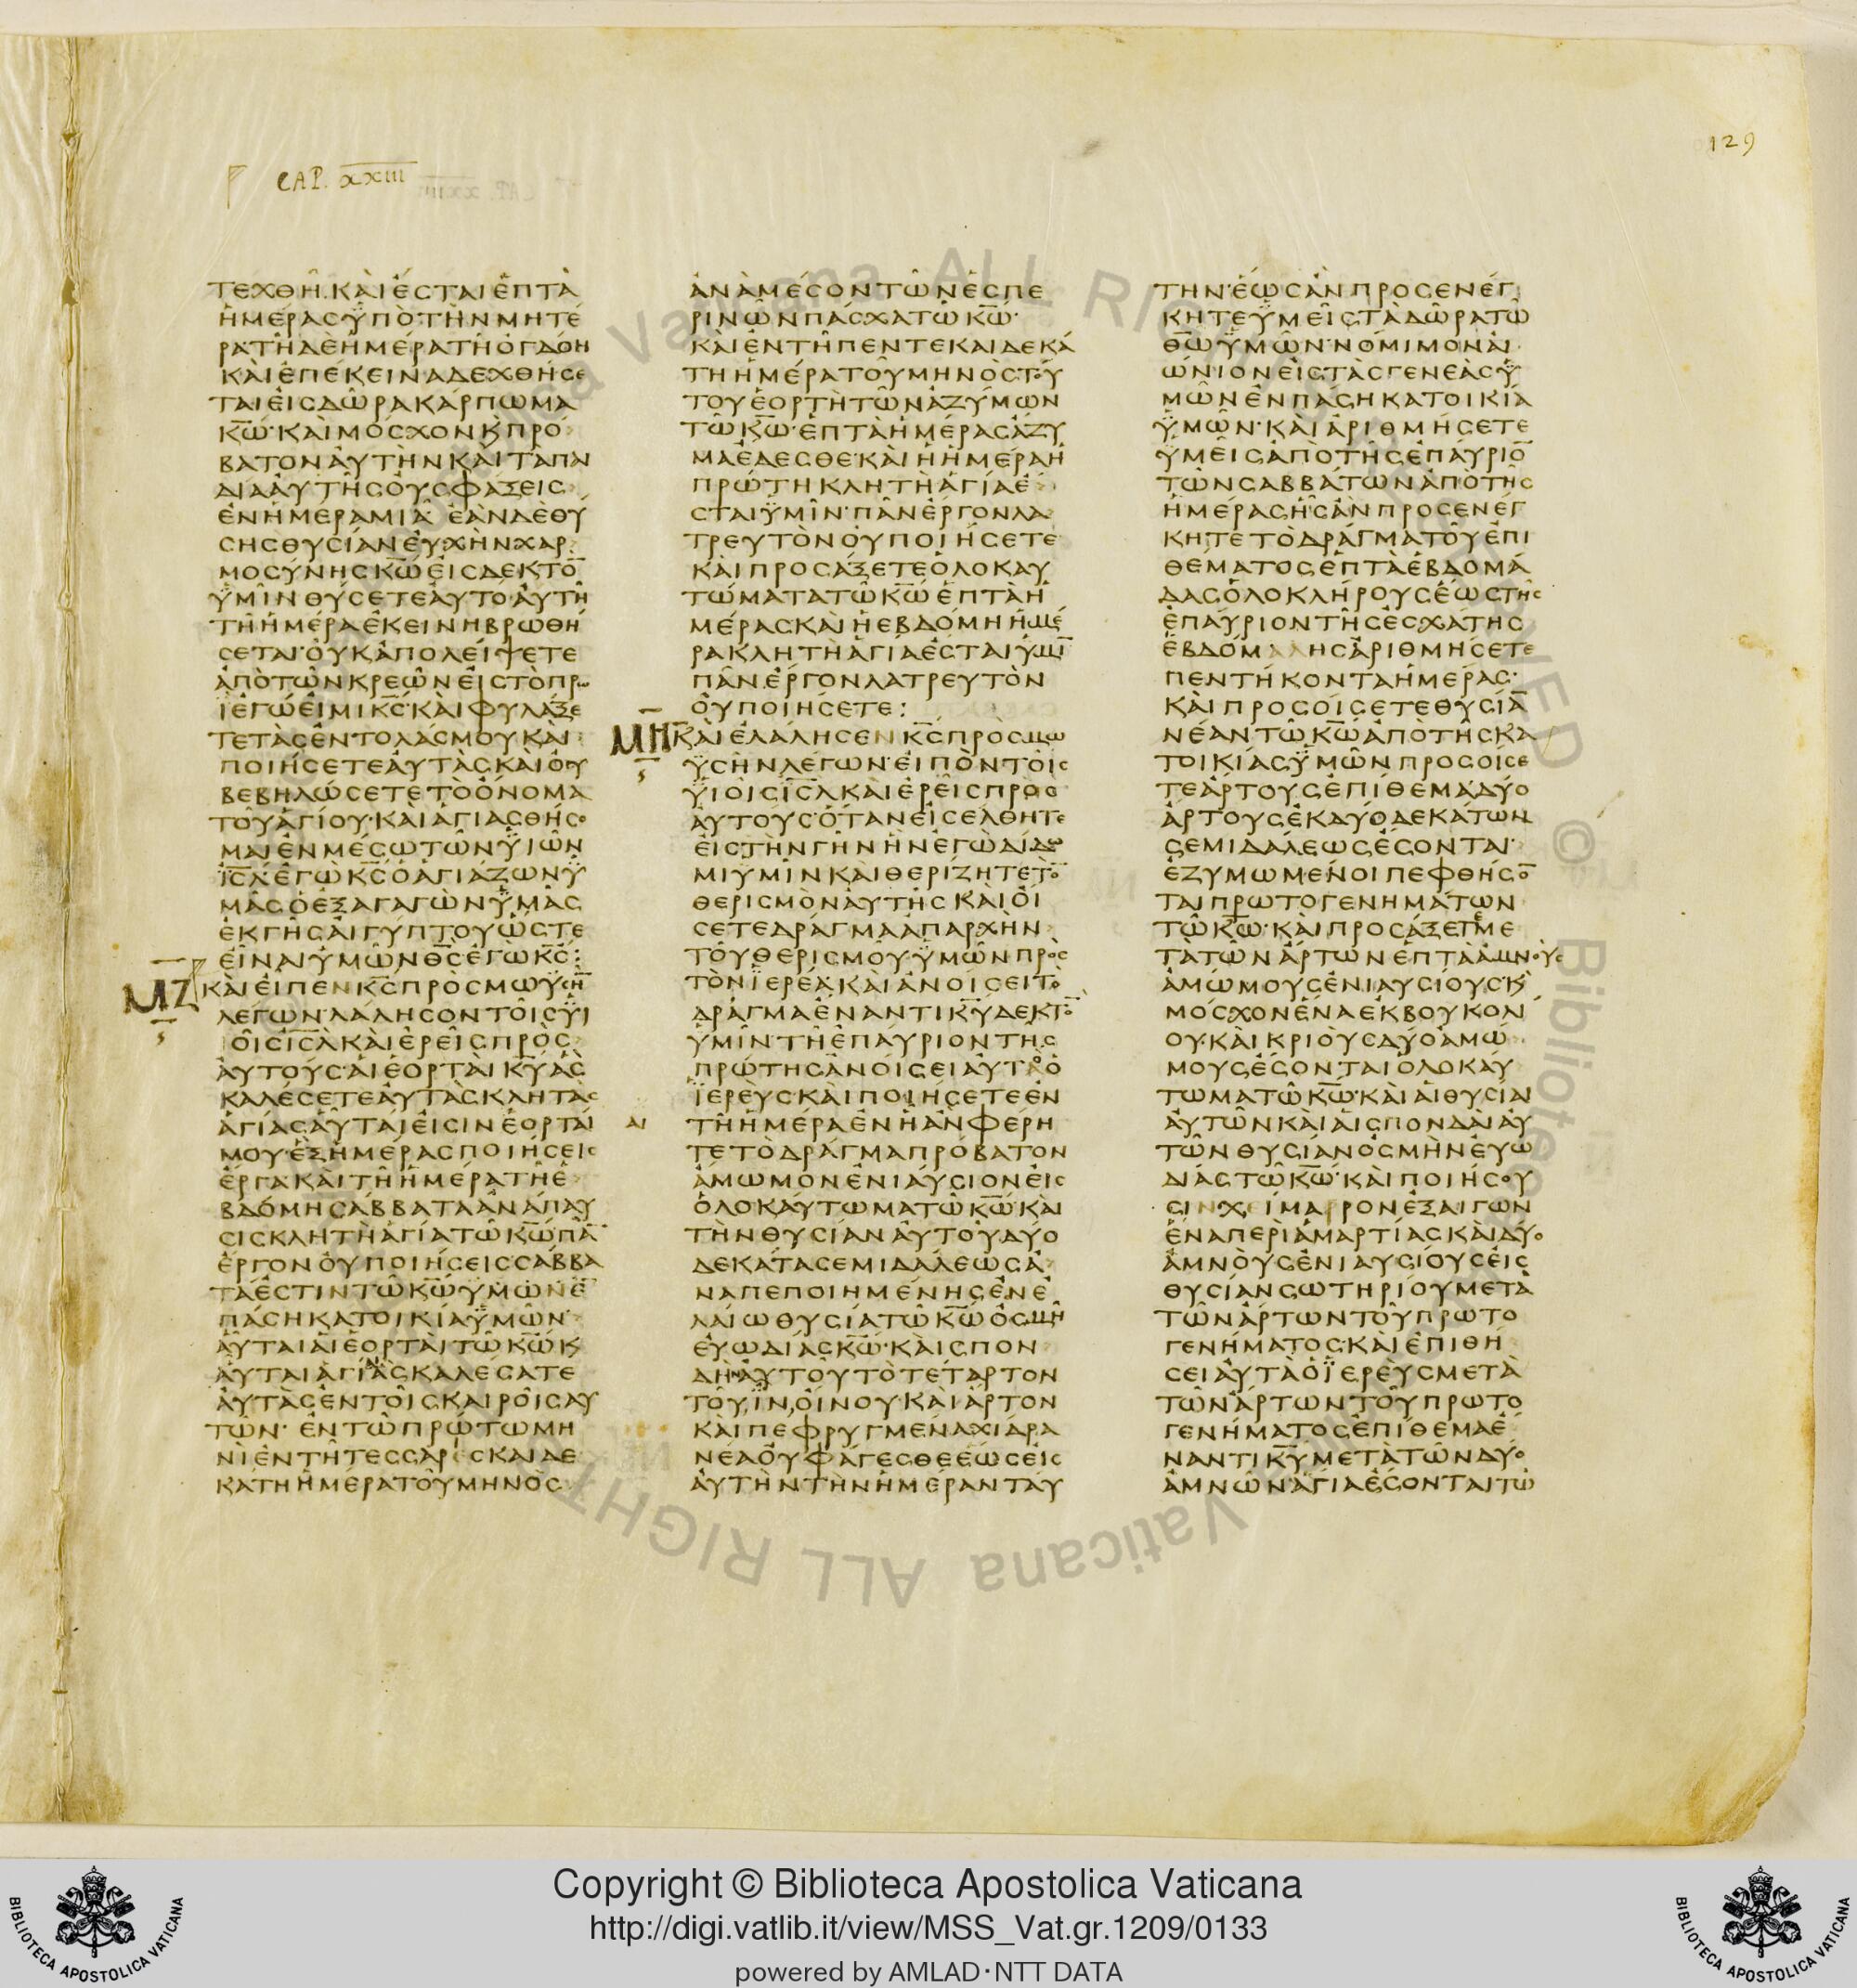 129
CAP. XXIII
ΤΕΧΘΗ·ΚΑΙΕϹΤΑΙΕΠΤΑ
ΗΜΕΡΑϹΥΠΟΤΗΝΜΗΤΕ
ΡΑΤΗΔΕΗΜΕΡΑΤΗΟΓΔΟΗ
ΚΑΙΕΠΕΚΕΙΝΑΔΕΧΘΗϹΕ
ΤΑΙΕΙϹΔΩΡΑΚΑΡΠΩΜΑ
ΚΩ·ΚΑΙΜΟϹΧΟΝΚΠΡΟ
ΒΑΤΟΝΑΥΤΗΝΚΑΙΤΑΠΑΙ
ΔΙΑΑΥΤΗϹΟΥϹΦΑΞΕΙϹ
ΕΝΗΜΕΡΑΜΙΑ·ΕΑΝΔΕΘΥ
ϹΗϹΘΥϹΙΑΝΕΥΧΗΝΧΑΡ
ΜΟϹΥΝΗϹΚΩΕΙϹΔΕΚΤΟ
ΥΜΙΝΘΥϹΕΤΕΑΥΤΟ·ΑΥΤΗ
ΤΗΗΜΕΡΑΕΚΕΙΝΗΒΡΩΘΗ
ϹΕΤΑΙ·ΟΥΚΑΠΟΛΕΙΨΕΤΕ
ΑΠΟΤΩΝΚΡΕΩΝΕΙϹΤΟΠΡΩ
ΙΕΓΩΕΙΜΙΚϹ·ΚΑΙΦΥΛΑΞΕ
ΤΕΤΑϹΕΝΤΟΛΑϹΜΟΥΚΑΙ
ΠΟΙΗϹΕΤΕΑΥΤΑϹΚΑΙΟΥ
ΒΕΒΗΛΩϹΕΤΕΤΟΟΝΟΜΑ
ΤΟΥΑΓΙΟΥ·ΚΑΙΑΓΙΑϹΘΗϹΟ
ΜΑΙΕΝΜΕϹΩΤΩΝΥΙΩΝ
ΙϹΛΕΓΩΚϹΟΑΓΙΑΖΩΝΥ
ΜΑϹΟΕΞΑΓΑΓΩΝΥΜΑϹ
ΕΚΓΗϹΑΙΓΥΠΤΟΥΩϹΤΕ
ΕΙΝΑΙΥΜΩΝΘϹΕΓΩΚϹ:
ΜΖ ΚΑΙΕΙΠΕΝΚϹΠΡΟϹΜΩΥϹΗ
ΛΕΓΩΝ·ΛΑΛΗϹΟΝΤΟΙϹΥΙ
ΟΙϹΙϹΛΚΑΙΕΡΕΙϹΠΡΟϹ
ΑΥΤΟΥϹ·ΑΙΕΟΡΤΑΙΚΥΑϹ
ΚΑΛΕϹΕΤΕΑΥΤΑϹΚΛΗΤΑϹ
ΑΓΙΑϹΑΥΤΑΙΕΙϹΙΝΕΟΡΤΑΙ
ΜΟΥ·ΕΞΗΜΕΡΑϹΠΟΙΗϹΕΙϹ
ΕΡΓΑΚΑΙΤΗΗΜΕΡΑΤΗΕ
ΒΔΟΜΗϹΑΒΒΑΤΑΑΝΑΠΑΥ
ϹΙϹΚΛΗΤΗΑΓΙΑΤΩΚΩΠΑ
ΕΡΓΟΝΟΥΠΟΙΗϹΕΙϹϹΑΒΒΑ
ΤΑΕϹΤΙΝΤΩΚΩΥΜΩΝΕ
ΠΑϹΗΚΑΤΟΙΚΙΑΥΜΩΝ·
ΑΥΤΑΙΑΙΕΟΡΤΑΙΤΩΚΩΚ
ΑΥΤΑΙΑΓΙΑϹΚΑΛΕϹΑΤΕ
ΑΥΤΑϹΕΝΤΟΙϹΚΑΙΡΟΙϹΑΥ
ΤΩΝ·ΕΝΤΩΠΡΩΤΩΜΗ
ΝΙΕΝΤΗΤΕϹϹΑΡΕϹΚΑΙΔΕ
ΚΑΤΗΗΜΕΡΑΤΟΥΜΗΝΟϹ
ΑΝΑΜΕϹΟΝΤΩΝΕϹΠΕ
ΡΙΝΩΝΠΑϹΧΑΤΩΚΩ·
ΚΑΙΕΝΤΗΠΕΝΤΕΚΑΙΔΕΚΑ
ΤΗΗΜΕΡΑΤΟΥΜΗΝΟϹΤΟΥ
ΤΟΥΕΟΡΤΗΤΩΝΑΖΥΜΩΝ
ΤΩΚΩ·ΕΠΤΑΗΜΕΡΑϹΑΖΥ
ΜΑΕΔΕϹΘΕ·ΚΑΙΗΗΜΕΡΑΗ
ΠΡΩΤΗΚΛΗΤΗΑΓΙΑΕ
ϹΤΑΙΥΜΙΝ·ΠΑΝΕΡΓΟΝΛΑ
ΤΡΕΥΤΟΝΟΥΠΟΙΗϹΕΤΕ
ΚΑΙΠΡΟϹΑΞΕΤΕΟΛΟΚΑΥ
ΤΩΜΑΤΑΤΩΚΩΕΠΤΑΗ
ΜΕΡΑϹ·ΚΑΙΗΕΒΔΟΜΗΗΜΕ
ΡΑΚΛΗΤΗΑΓΙΑΕϹΤΑΙΥΜΙ
ΠΑΝΕΡΓΟΝΛΑΤΡΕΥΤΟΝ
ΟΥΠΟΙΗϹΕΤΕ:
ΜΗ ΚΑΙΕΛΑΛΗϹΕΝΚϹΠΡΟϹΜΩ
ΥϹΗΝΛΕΓΩΝ·ΕΙΠΟΝΤΟΙϹ
ΥΙΟΙϹΙϹΛΚΑΙΕΡΕΙϹΠΡΟϹ
ΑΥΤΟΥϹ·ΟΤΑΝΕΙϹΕΛΘΗΤΕ
ΕΙϹΤΗΝΓΗΝΗΝΕΓΩΔΙΔΩ
ΜΙΥΜΙΝΚΑΙΘΕΡΙΖΗΤΕΤΟ
ΘΕΡΙϹΜΟΝΑΥΤΗϹΚΑΙΟΙ
ϹΕΤΕΔΡΑΓΜΑΑΠΑΡΧΗΝ
ΤΟΥΘΕΡΙϹΜΟΥΥΜΩΝΠΡΟϹ
ΤΟΝΙΕΡΕΑ·ΚΑΙΑΝΟΙϹΕΙΤΟ
ΔΡΑΓΜΑΕΝΑΝΤΙΚΥΔΕΚΤΟ
ΥΜΙΝ·ΤΗΕΠΑΥΡΙΟΝΤΗϹ
ΠΡΩΤΗϹΑΝΟΙϹΕΙΑΥΤΟΟ
ΙΕΡΕΥϹ·ΚΑΙΠΟΙΗϹΕΤΕΕΝ
ΑΙ ΤΗΗΜΕΡΑΕΝΗΑΝΦΕΡΗ
ΤΕΤΟΔΡΑΓΜΑΠΡΟΒΑΤΟΝ
ΑΜΩΜΟΝΕΝΙΑΥϹΙΟΝΕΙϹ
ΟΛΟΚΑΥΤΩΜΑΤΩΚΩ·ΚΑΙ
ΤΗΝΘΥϹΙΑΝΑΥΤΟΥΔΥΟ
ΔΕΚΑΤΑϹΕΜΙΔΑΛΕΩϹΑ
ΝΑΠΕΠΟΙΗΜΕΝΗϹΕΝΕ
ΛΑΙΩΘΥϹΙΑΤΩΚΩΟϹΜΗ
ΕΥΩΔΙΑϹΚΩ·ΚΑΙϹΠΟΝ
ΔΗΝΑΥΤΟΥΤΟΤΕΤΑΡΤΟΝ
ΤΟΥΙΝΟΙΝΟΥ·ΚΑΙΑΡΤΟΝ
ΚΑΙΠΕΦΡΥΓΜΕΝΑΧΙΔΡΑ
ΝΕΑΟΥΦΑΓΕϹΘΕΕΩϹΕΙϹ
ΑΥΤΗΝΤΗΝΗΜΕΡΑΝΤΑΥ
ΤΗΝ·ΕΩϹΑΝΠΡΟϹΕΝΕΓ
ΚΗΤΕΥΜΕΙϹΤΑΔΩΡΑΤΩ
ΘΩΥΜΩΝ·ΝΟΜΙΜΟΝΑΙ
ΩΝΙΟΝΕΙϹΤΑϹΓΕΝΕΑϹΥ
ΜΩΝΕΝΠΑϹΗΚΑΤΟΙΚΙΑ
ΥΜΩΝ·ΚΑΙΑΡΙΘΜΗϹΕΤΕ
ΥΜΕΙϹΑΠΟΤΗϹΕΠΑΥΡΙΟ
ΤΩΝϹΑΒΒΑΤΩΝΑΠΟΤΗϹ
ΗΜΕΡΑϹΗϹΑΝΠΡΟϹΕΝΕΓ
ΚΗΤΕΤΟΔΡΑΓΜΑΤΟΥΕΠΙ
ΘΕΜΑΤΟϹΕΠΤΑΕΒΔΟΜΑ
ΔΑϹΟΛΟΚΛΗΡΟΥϹΕΩϹΤΗϹ
ΕΠΑΥΡΙΟΝΤΗϹΕϹΧΑΤΗϹ
ΕΒΔΟΜΑΔΗϹΑΡΙΘΜΗϹΕΤΕ
ΠΕΝΤΗΚΟΝΤΑΗΜΕΡΑϹ·
ΚΑΙΠΡΟϹΟΙϹΕΤΕΘΥϹΙΑ
ΝΕΑΝΤΩΚΩΑΠΟΤΗϹΚΑ
ΤΟΙΚΙΑϹΥΜΩΝΠΡΟϹΟΙϹΕ
ΤΕΑΡΤΟΥϹΕΠΙΘΕΜΑΔΥΟ
ΑΡΤΟΥϹΕΚΔΥΟΔΕΚΑΤΩΝ
ϹΕΜΙΔΑΛΕΩϹΕϹΟΝΤΑΙ·
ΕΖΥΜΩΜΕΝΟΙΠΕΦΘΗϹΟ
ΤΑΙΠΡΩΤΟΓΕΝΗΜΑΤΩΝ
ΤΩΚΩ·ΚΑΙΠΡΟϹΑΞΕΤΕΜΕ
ΤΑΤΩΝΑΡΤΩΝΕΠΤΑΑΜΝΟΥϹ
ΑΜΩΜΟΥϹΕΝΙΑΥϹΙΟΥϹΚ
ΜΟϹΧΟΝΕΝΑΕΚΒΟΥΚΟΛΙ
ΟΥ·ΚΑΙΚΡΙΟΥϹΔΥΟΑΜΩ
ΜΟΥϹΕϹΟΝΤΑΙΟΛΟΚΑΥ
ΤΩΜΑΤΩΚΩ·ΚΑΙΑΙΘΥϹΙΑΙ
ΑΥΤΩΝΚΑΙΑΙϹΠΟΝΔΑΙΑΥ
ΤΩΝΘΥϹΙΑΝΟϹΜΗΝΕΥΩ
ΔΙΑϹΤΩΚΩ·ΚΑΙΠΟΙΗϹΟΥ
ϹΙΝΧΕΙΜΑΡΡΟΝΕΞΑΙΓΩΝ
ΕΝΑΠΕΡΙΑΜΑΡΤΙΑϹΚΑΙΔΥΟ
ΑΜΝΟΥϹΕΝΙΑΥϹΙΟΥϹΕΙϹ
ΘΥϹΙΑΝϹΩΤΗΡΙΟΥΜΕΤΑ
ΤΩΝΑΡΤΩΝΤΟΥΠΡΩΤΟ
ΓΕΝΗΜΑΤΟϹ·ΚΑΙΕΠΙΘΗ
ϹΕΙΑΥΤΑΟΙΕΡΕΥϹΜΕΤΑ
ΤΩΝΑΡΤΩΝΤΟΥΠΡΩΤΟ
ΓΕΝΗΜΑΤΟϹΕΠΙΘΕΜΑΕ
ΝΑΝΤΙΚΥΜΕΤΑΤΩΝΔΥΟ
ΑΜΝΩΝ·ΑΓΙΑΕϹΟΝΤΑΙΤΩ
Copyright © Biblioteca Apostolica Vaticana
http://digi.vatlib.it/view/MSS_Vat.gr.1209/0133
powered by AMLAD·NTT DATA
BIBLIOTECA APOSTOLICA VATICANA
BIBLIOTECA APOSTOLICA VATICANA